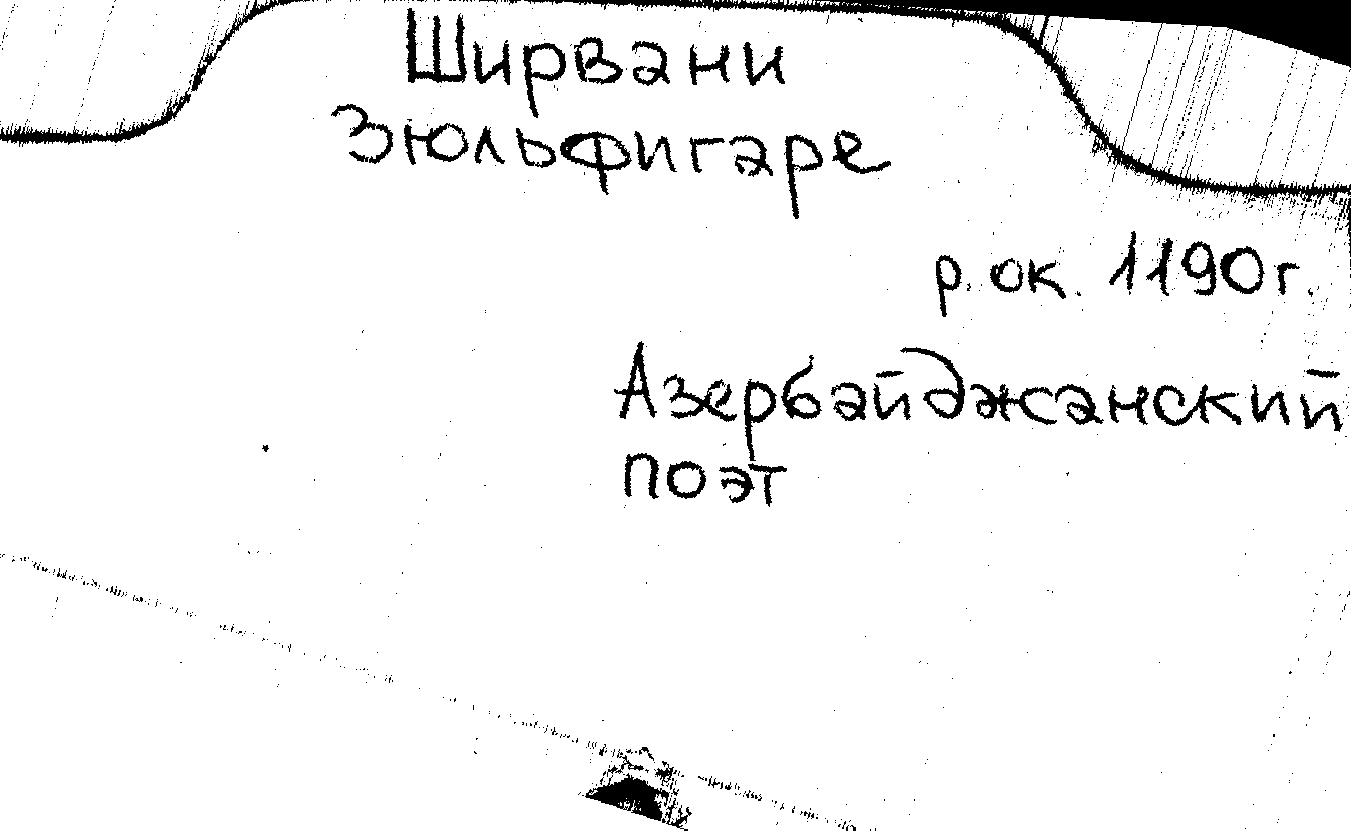 Ширвани
Зюльфигаре
р. ок. 1190 г.
Азербайджанский
поэт